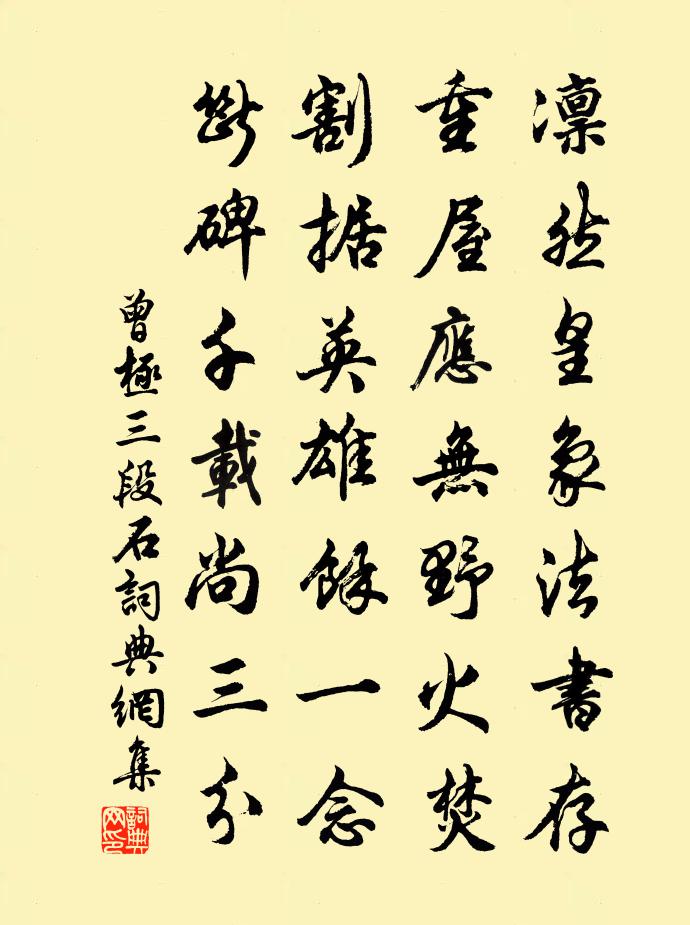 凛然皇象法書存
重屋應無野火焚
割据英雄餘一念
斷碑千載尚三分
曾極三段石詞典網集
詞典網印